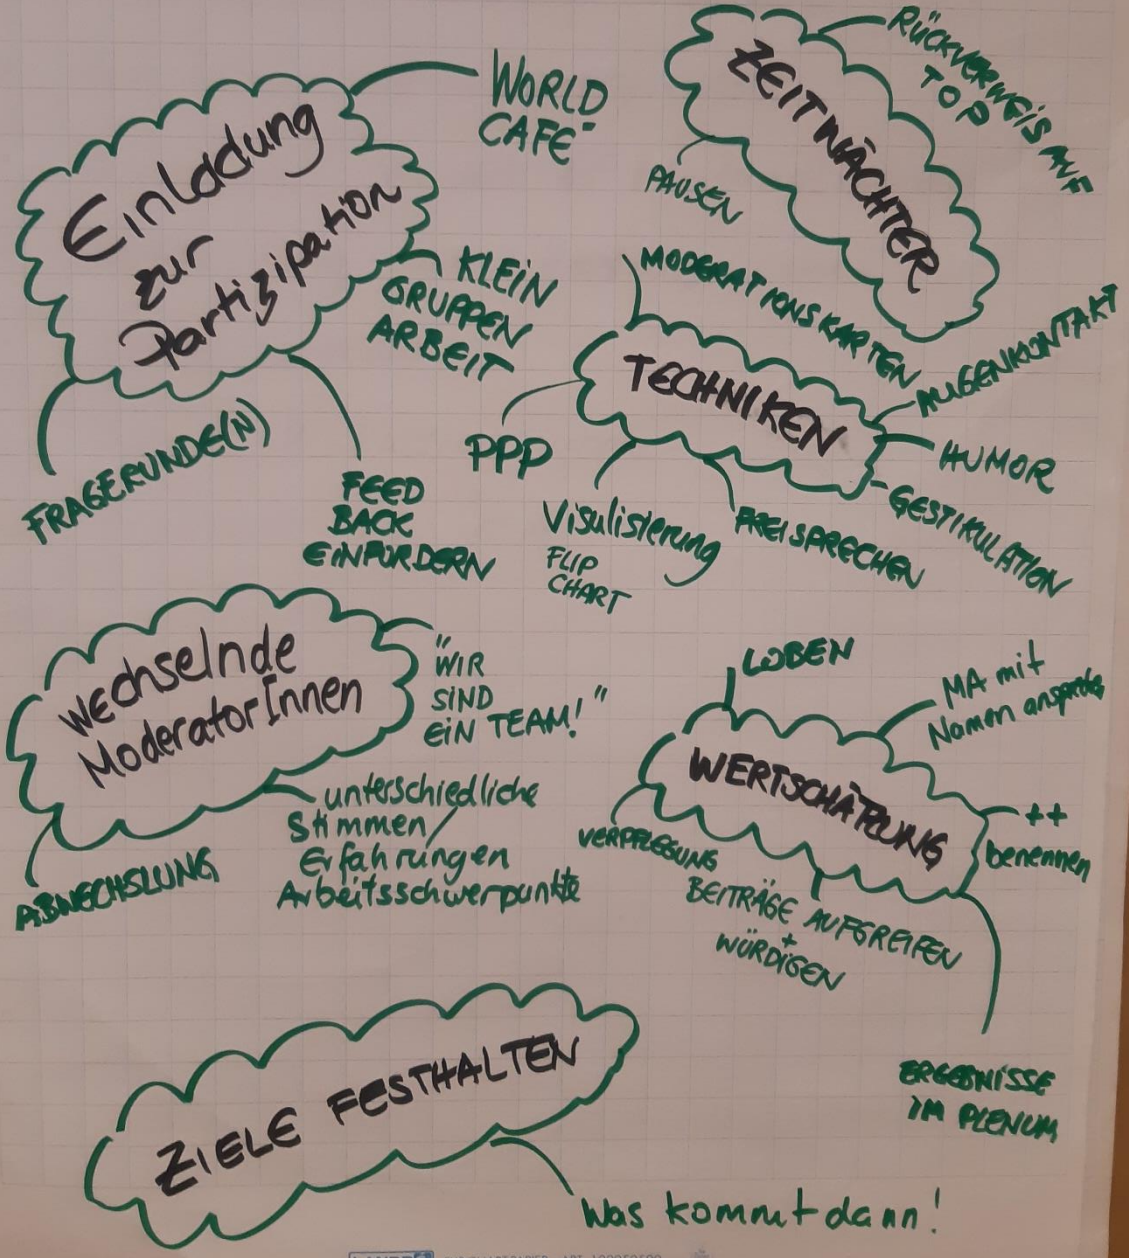 Einladung
zur
Partizipation
WORLD
CAFE
KLEIN
GRUPPEN
ARBEIT
FRAGERUNDE(N)
FEED
BACK
EINFORDERN
ZEITWÄCHTER
RÜCKVERWEIS AUF
TOP
PAUSEN
TECHNIKEN
MODERATIONSKARTEN
AUGENKONTAKT
HUMOR
GESTIKULATION
FREI SPRECHEN
Visulisierung
FLIP
CHART
PPP
wechselnde
ModeratorInnen
"WIR
SIND
EIN TEAM!"
unterschiedliche
Stimmen/
Erfahrungen
Arbeitsschwerpunkte
ABWECHSLUNG
WERTSCHÄTZUNG
LOBEN
MA mit
Namen
++
benennen
VERPFLEGUNG
BEITRÄGE AUFGREIFEN
+
WÜRDIGEN
ERGEBNISSE
IM PLENUM
ZIELE FESTHALTEN
Was kommt dann!